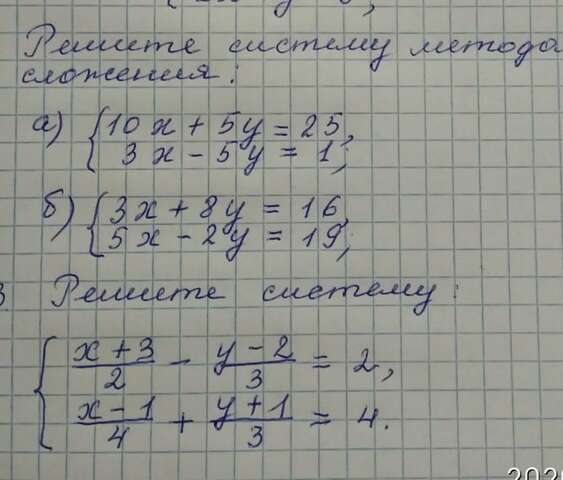 Решите систему метода
сложения:
а) { 10x + 5y = 25,
3x - 5y = 1;
б) { 3x + 8y = 16,
5x - 2y = 19;
3 Решите систему:
{ (x + 3)/2 - (y - 2)/3 = 2,
(x - 1)/4 + (y + 1)/3 = 4.